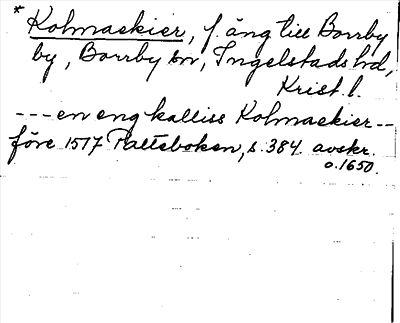 * Kolmaekier, f. äng till Borrby
by, Borrby sn, Ingelstads hd,
Krist. l.
--- en eng kalliss Kolmaekier --
före 1517 Palteboken, s. 384. avskr.
o. 1650.